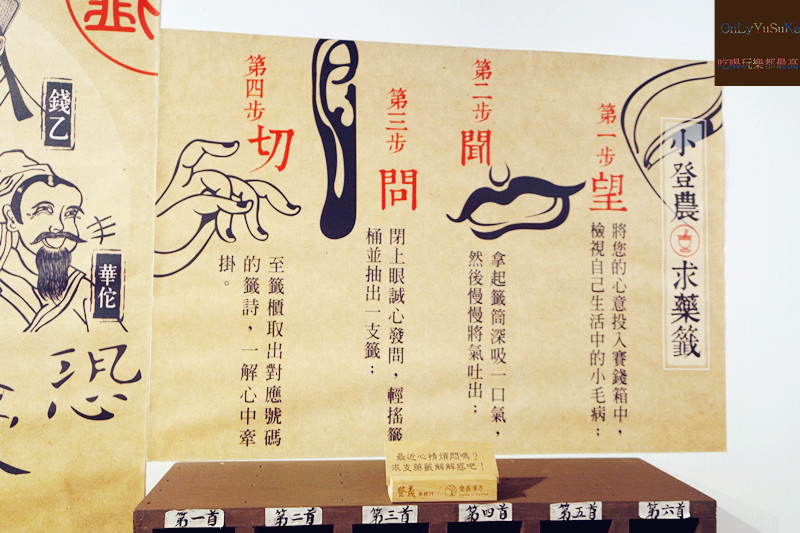 小登農求藥籤
第一步
望
將您的心意投入賽錢箱中，
檢視自己生活中的小毛病；
第二步
聞
拿起籤筒深吸一口氣，
然後慢慢將氣吐出；
第三步
問
閉上眼誠心發問，輕搖籤
桶並抽出一支籤；
第四步
切
至籤櫃取出對應號碼
的籤詩，一解心中牽
掛。
錢乙
華佗
恐
最近心情煩悶嗎？
求支藥籤解解惑吧！
第一首
第二首
第三首
第四首
第五首
第六首
OnLyYuSuKe
吃喝玩樂都最高